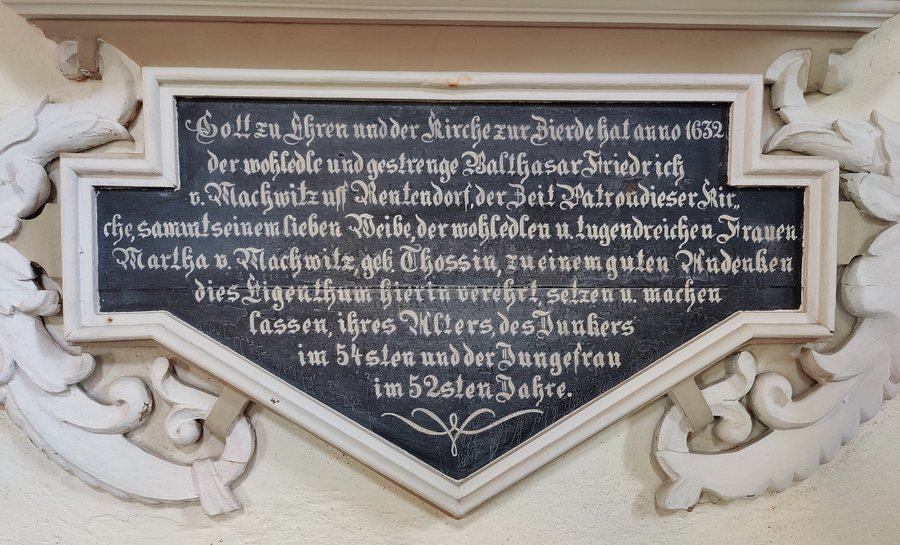 Gott zu Ehren und der Kirche zur Zierde hat anno 1632.
der wohledle und gestrenge Balthasar Friedrich
v. Machwitz uff Rentendorf, der Zeit Patron dieser Kir„
che, sammt seinem lieben Weibe, der wohledlen u. tugendreichen Frauen
Martha v. Machwitz, geb. Thossin, zu einem guten Andenken
dies Eigenthum hierin verehrt, setzen u. machen
lassen, ihres Alters des Junkers
im 54sten und der Jungefrau
im 52sten Jahre.